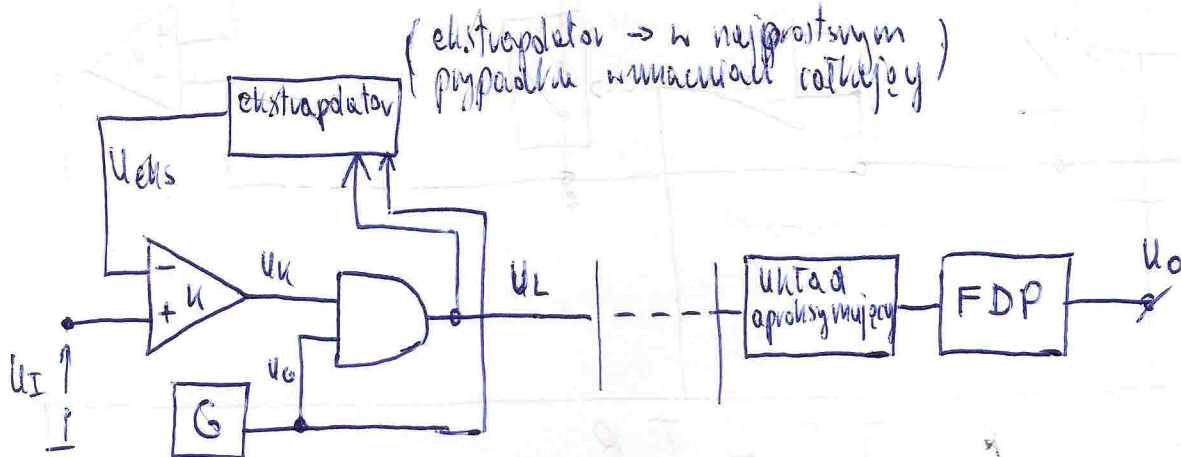 ( ekstrapolator → w najprostszym
przypadku wzmacniacz całkujący )
ekstrapolator
Ueks
−
+
K
UK
UL
układ
aproksymujący
FDP
UO
UI
UG
G